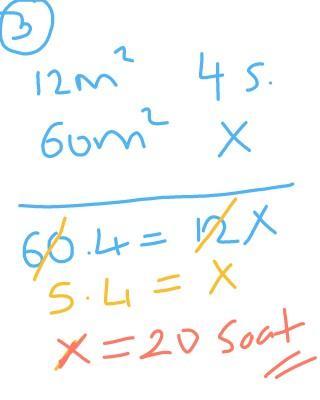 3
12m² 4 s.
60m² X
60.4 = 12X
5.4 = X
X = 20 soat